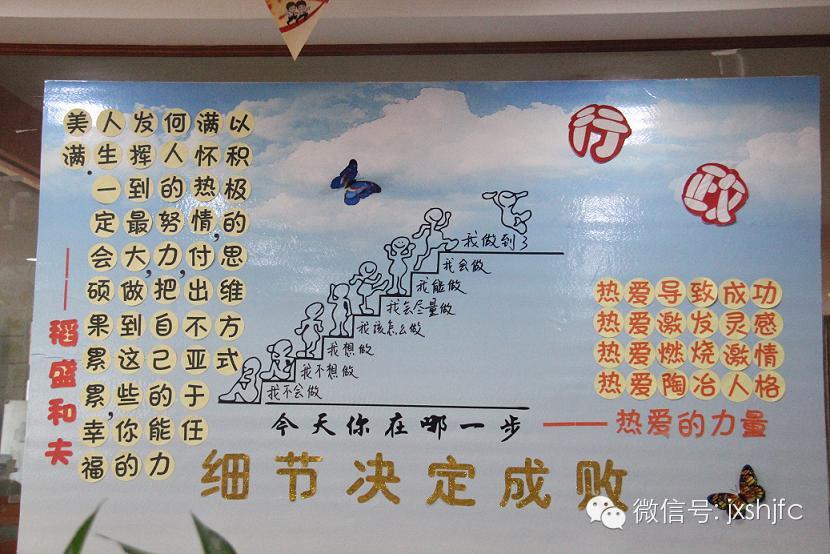 以积极的思维方式
满怀热情,付出不亚于任
何人的努力,把自己的能力
发挥到最大,做到这些你的
人生一定会硕果累累,幸福
美满.
——稻盛和夫
行政
我做到了
我会做
我能做
我会尽量做
我该怎么做
我想做
我不想做
我不会做
今天你在哪一步
热爱导致成功
热爱激发灵感
热爱燃烧激情
热爱陶冶人格
——热爱的力量
细节决定成败
微信号: jxshjfc